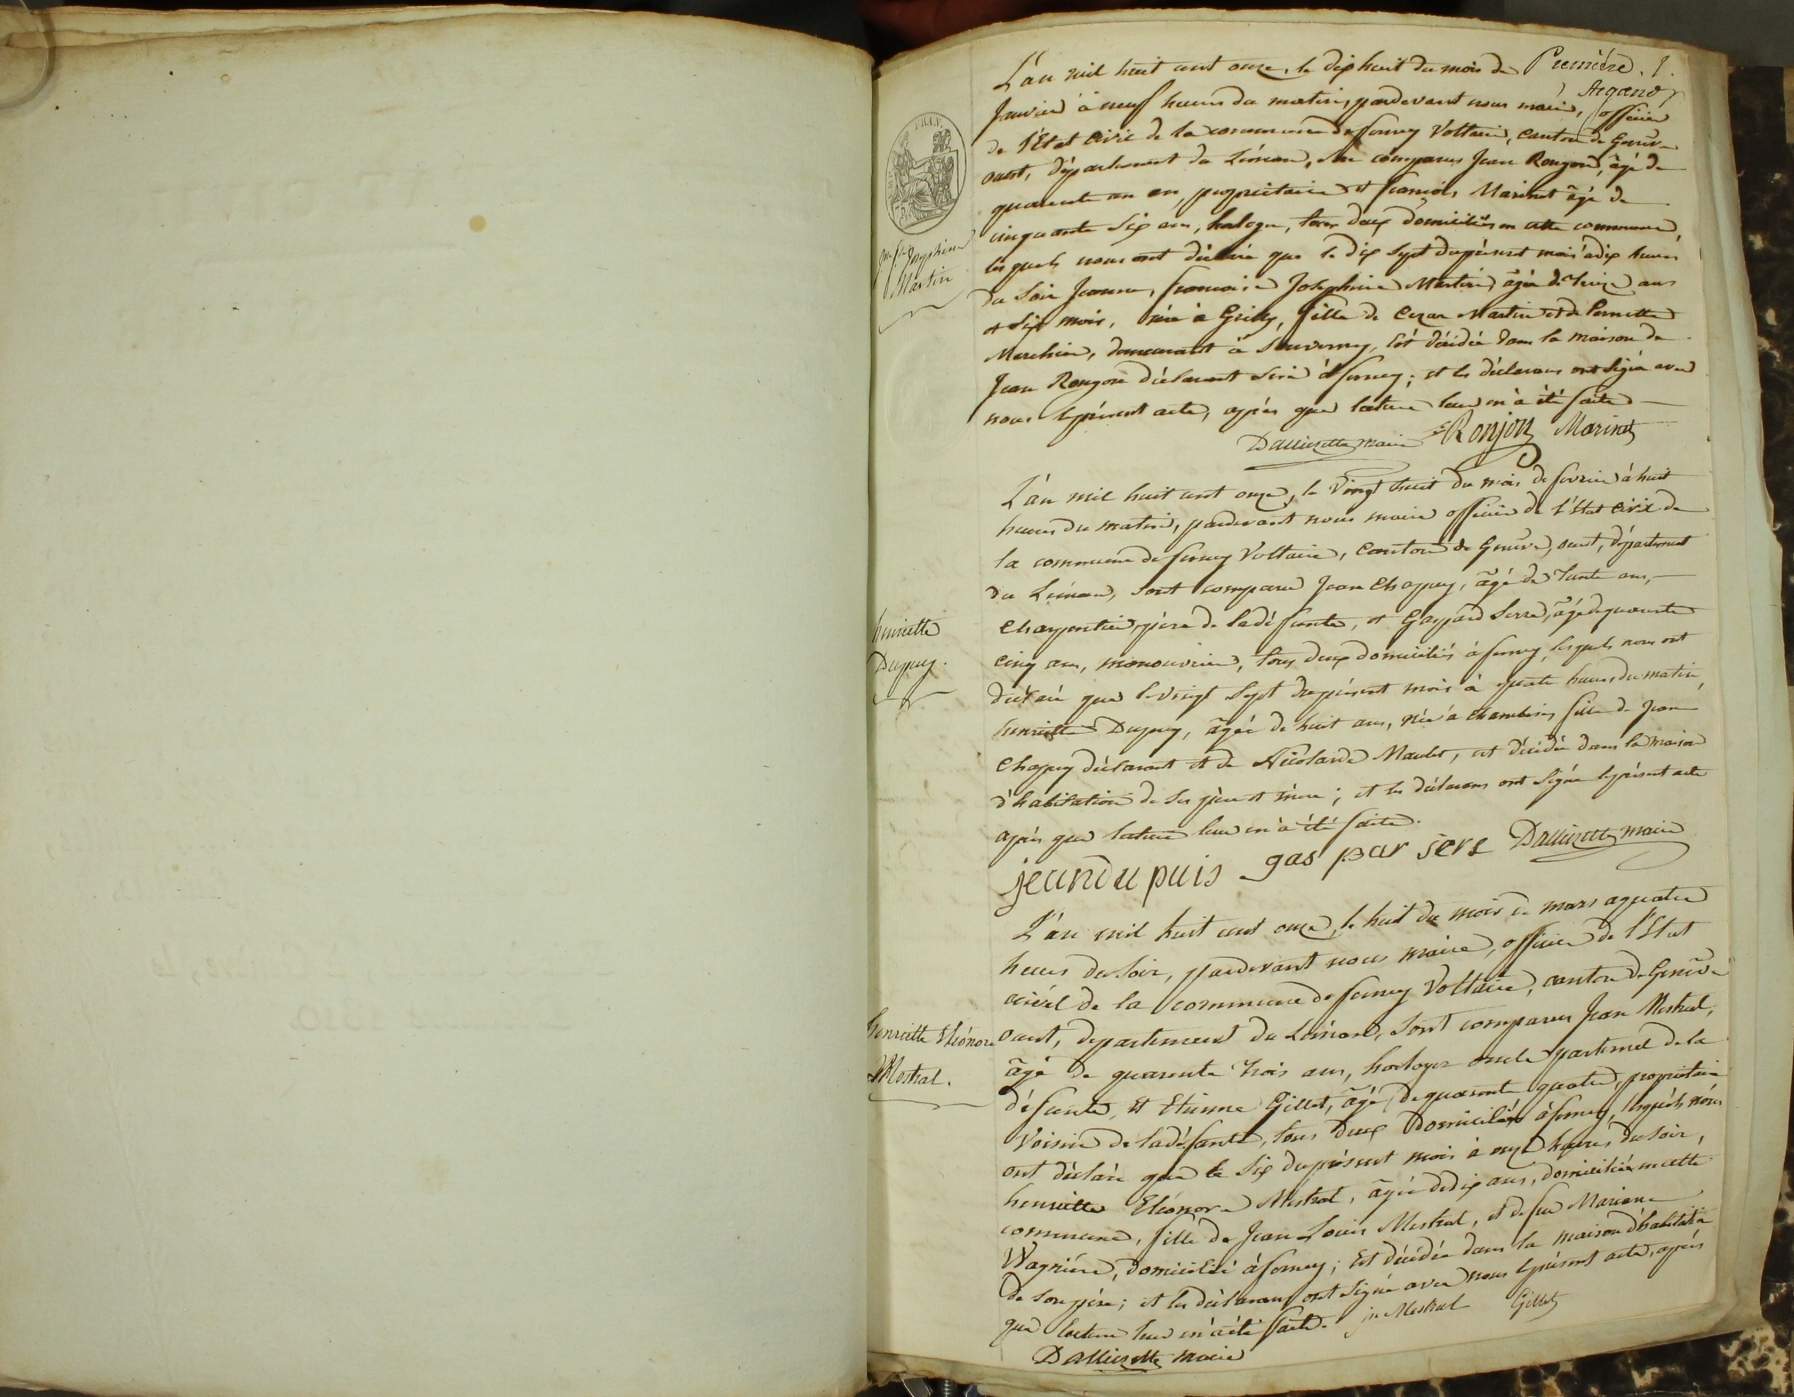 Première. 1.
Argand
L'an mil huit cent onze, le dix huit du mois de
Janvier à neuf heures du matin, pardevant nous maire, officier
de l'Etat Civil de la commune de ferney Voltaire, canton de Genève
ouest, département du Léman, sont comparus Jean Ronjon, âgé de
quarante un an, propriétaire et francois Marinet âgé de
cinquante six ans, horloger, tous deux domiciliés en cette commune,
lesquels nous ont déclaré que le dix sept du présent mois à dix heures
du soir Jeanne, francoise Josephine Martin, âgée de treize ans
et six mois, née à Grilly, fille de Cezar Martin et de Pernette
Marchin, demeurant à Sauverny, est décédée dans la maison de
Jean Ronjon déclarant sise à ferney; et les déclarans ont signé avec
nous le présent acte, après que lecture leur en a été faite
Dallizette maire Ronjon Marinet
Josephine
Martin
L'an mil huit cent onze, le vingt huit du mois de fevrier à huit
heures du matin, pardevant nous maire officier de l'Etat civil de
la commune de ferney Voltaire, Canton de Genève, ouest, département
du Léman, sont comparu Jean Chapuy, âgé de trente ans,
Charpentier, père de la défunte, et Gaspard Serre, âgé de quarante
cinq ans, manouvrier, tous deux domiciliés à ferney, lesquels nous ont
déclaré que le vingt sept du présent mois à quatre heures du matin,
henriette Dupuy, âgée de huit ans, née à Chambéry, fille de Jean
Chapuy déclarant et de Nicolarde Maulet, est décédée dans la maison
d'habitation de ses père et mère; et les déclarans ont signé le présent acte
après que lecture leur en a été faite.
jean du puis gas par sere Dallizette maire
henriette
Dupuy.
L'an mil huit cent onze, le huit du mois de mars a quatre
heures du soir, pardevant nous maire, officier de l'Etat
civil de la commune de ferney Voltaire, canton de Genève
ouest, departement du Léman, sont comparus Jean Mestral,
âgé de quarante trois ans, horloger oncle paternel de la
défunte, et Etienne Gillet, âgé de quarante quatre, propriétaire
Voisin de la défunte, tous deux domiciliés à ferney, lesquels nous
ont déclaré que le six du présent mois à onze heures du soir,
henriette Eléonore Mestral, âgée de dix ans, domiciliée en cette
commune, fille de Jean Louis Mestral, et de feu Mariane
Wagnière, domicilié à ferney; est décédée dans la maison d'habitation
de son père; et les déclarans ont signé avec nous le présent acte, après
que lecture leur en a été faite. Jn Mestral Gillet
Dallizette maire
henriette Eléonore
Mestral.